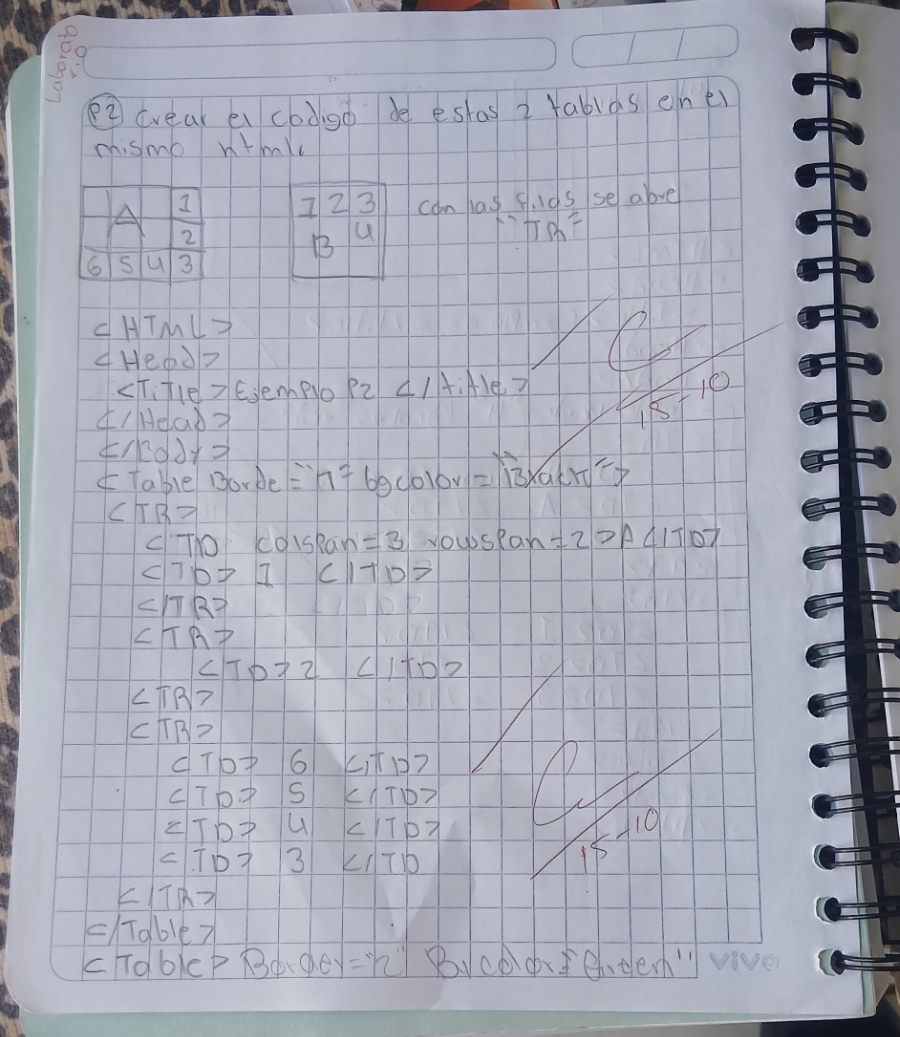 Laborato
rio
P2 Crear el codigo de estas 2 tablas en el
mismo html
A 1
2
6 5 4 3
1 2 3
B 4
con las filas se abre
"TR"
<HTML>
<Head>
<Title> Ejemplo P2 </title>
</Head>
</Body>
<Table Borde = "n" bgcolor =
<TR>
<TD colspan=3 rowspan=2>A</TD>
<TD> 1 </TD>
</TR>
<TR>
<TD>2 </TD>
<TR>
<TR>
<TD> 6 </TD>
<TD> 5 </TD>
<TD> 4 </TD>
<TD> 3 </TD
</TR>
</Table>
<Table> Border="n"
15-10
15-10
vive